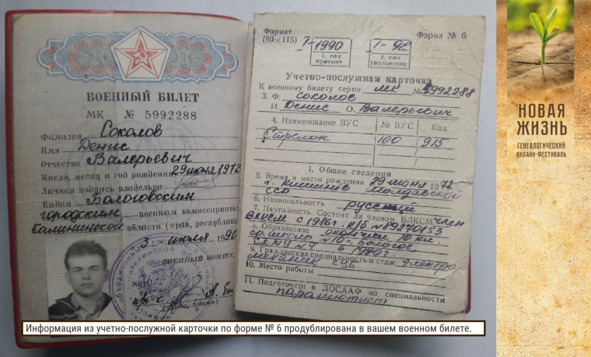 ВОЕННЫЙ БИЛЕТ
МК № 5992288
Фамилия Соколов
Имя Денис
Отчество Валерьевич
Число, месяц и год рождения 29 июня 1972
Личная подпись владельца
Выдан Бологовским
городским военным комиссариатом
Калининской области (края, республики)
3 июля 1990
ВОЕННЫЙ КОМИССАР
Формат
(80×115)
7-1990
1. год
призыва
7-92
2. год
увольнения
Форма № 6
Учетно-послужная карточка
К военному билету серии МК № 5992288
3. Ф. Соколов
И. Денис О. Валерьевич
4. Наименование ВУС № ВУС Код
Стрелок 100 915
I. Общие сведения
5. Время и место рождения 29 июня 1972
г. Кишинёв Молдавской
ССР
6. Национальность русский
7. Партийность. Состоит ли членом ВЛКСМ член
ВЛКСМ с 1986 г.
8. Образование окончил 10 кл.
9. Гражданская специальность и стаж электро
механик СЦБ
10. Место работы
11. Подготовка в ДОСААФ по специальности
парашютист
Информация из учетно-послужной карточки по форме № 6 продублирована в вашем военном билете.
НОВАЯ
ЖИЗНЬ
ГЕНЕАЛОГИЧЕСКИЙ
ОНЛАЙН-ФЕСТИВАЛЬ